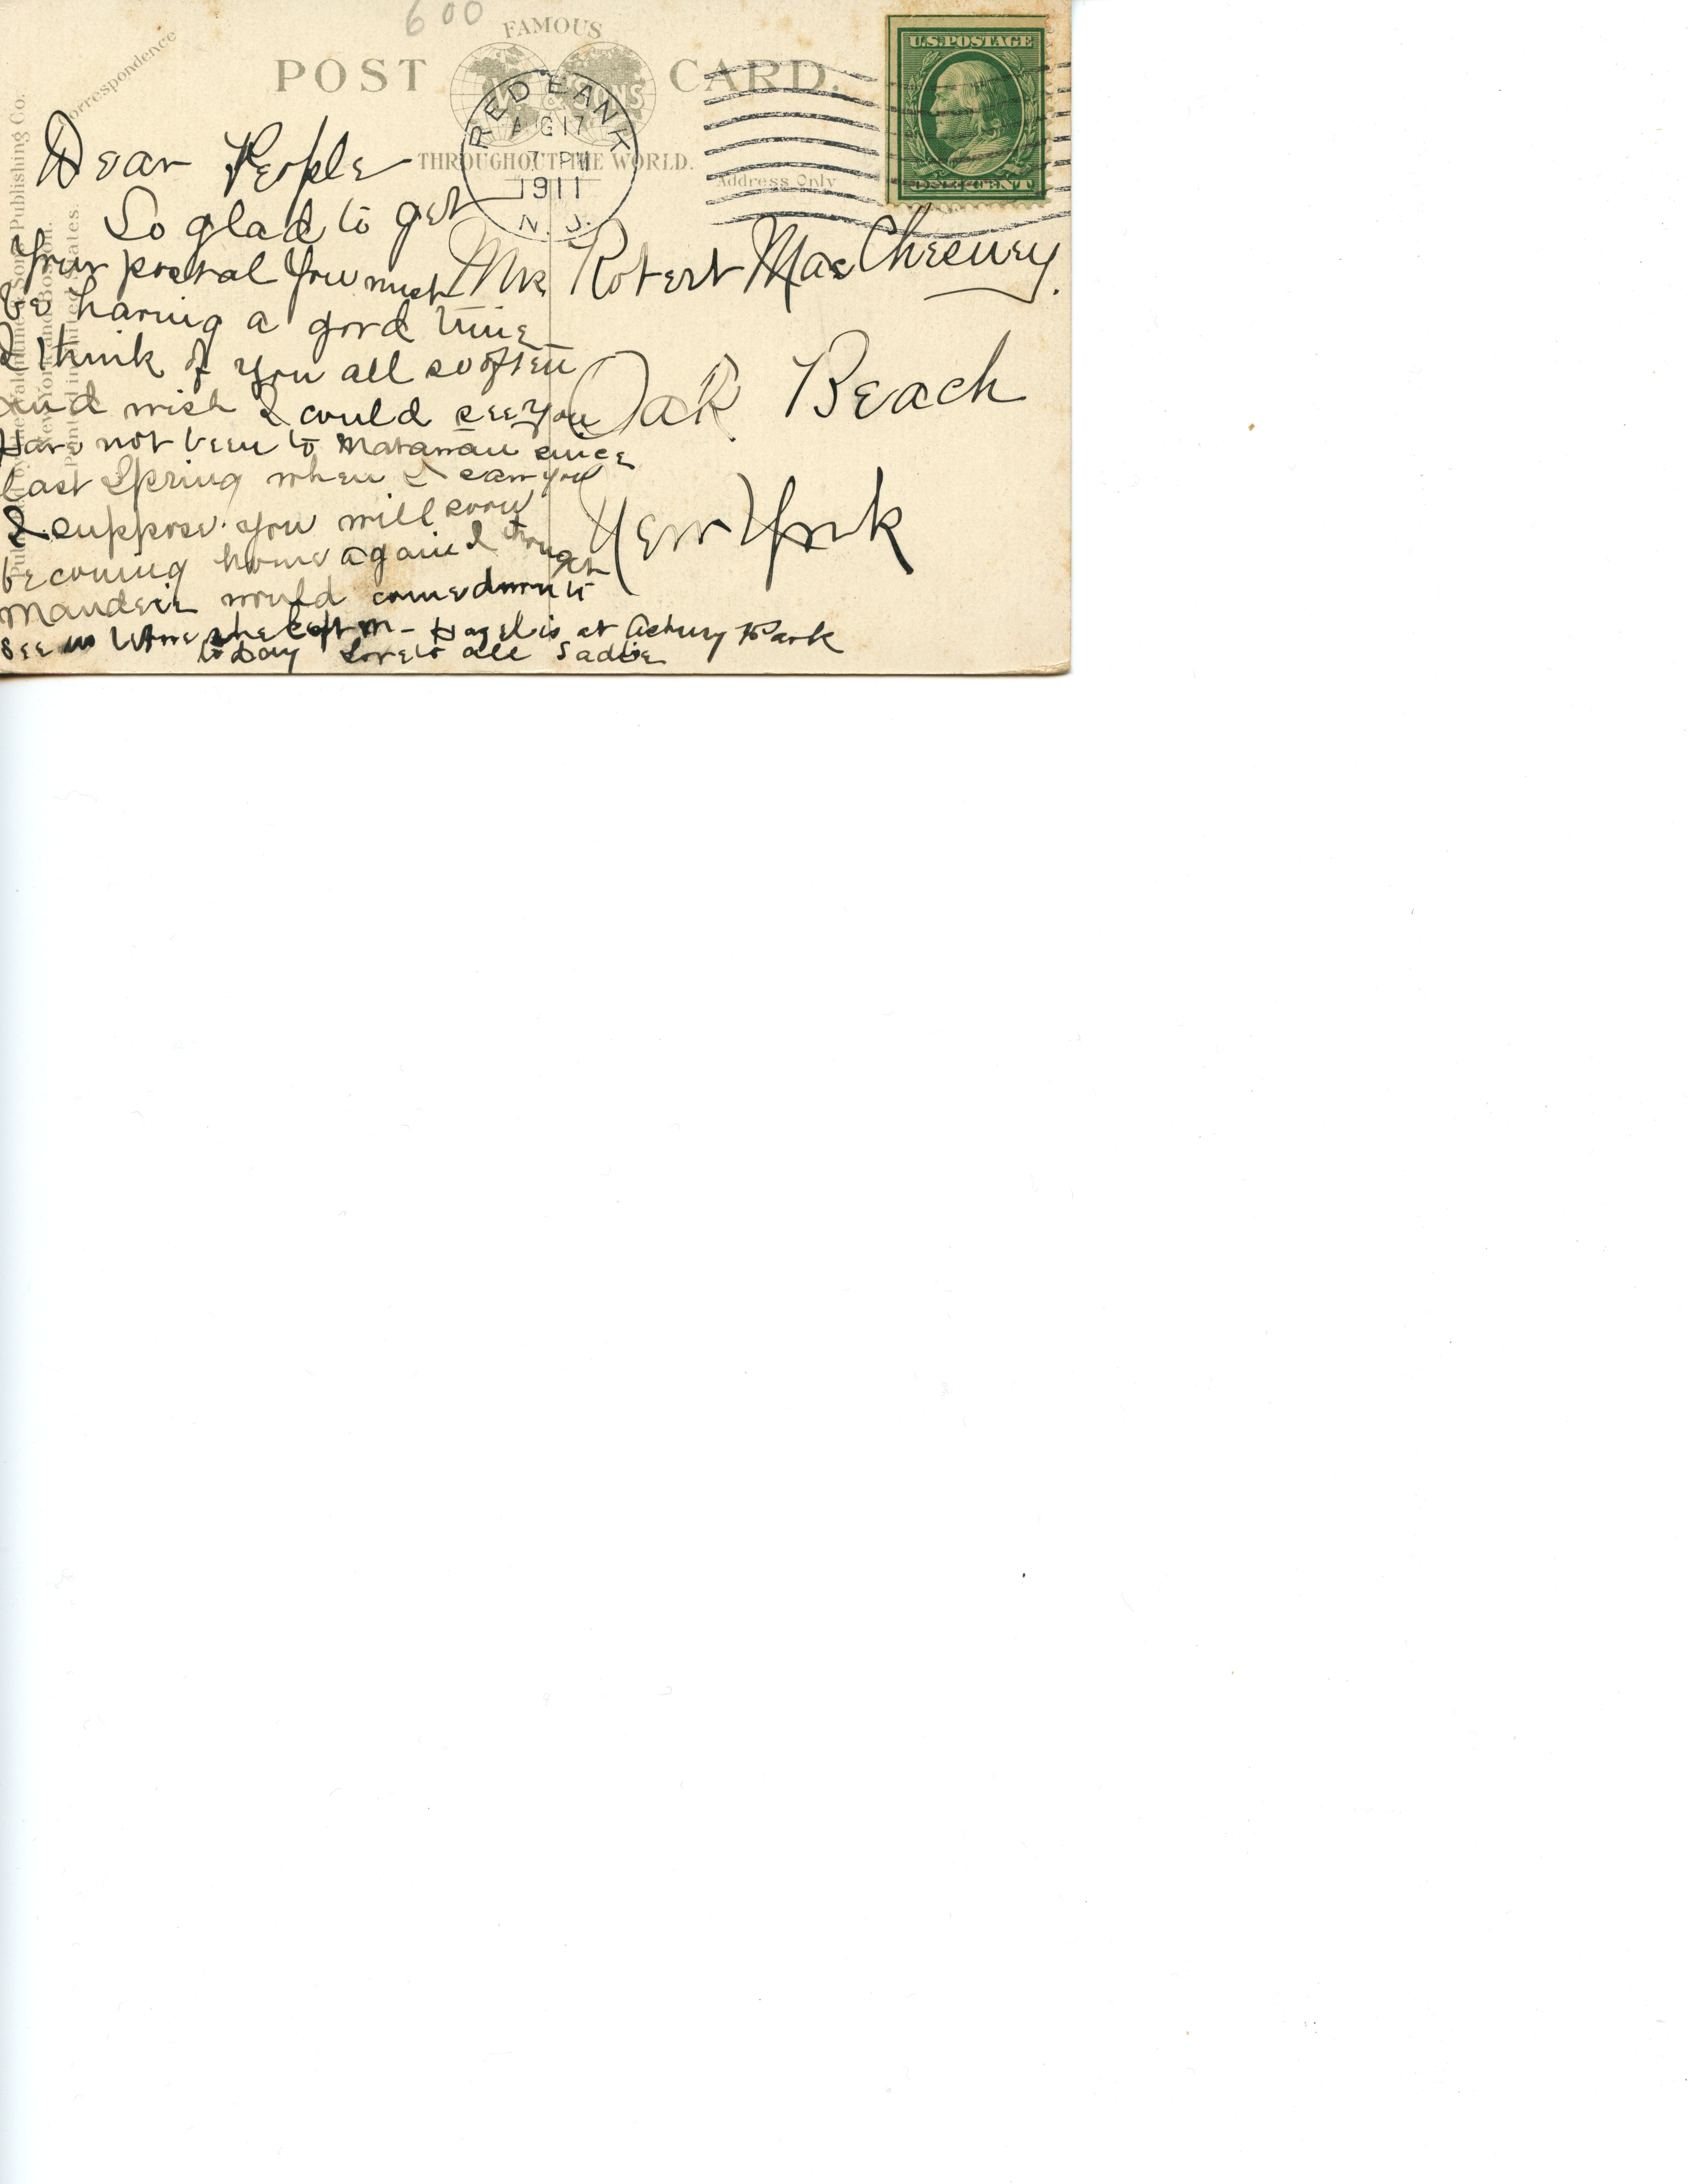 600
FAMOUS
POST CARD.
& SONS
THROUGHOUT THE WORLD.
Correspondence
Address Only
Publishing Co.
New York and Boston.
Printed in United States.
U.S. POSTAGE
ONE CENT
RED BANK
AUG 17
7 PM
1911
N. J.
Dear People
So glad to get
your postal You must
be having a good time
I think of you all so often
and wish I could see you
Have not been to Matawan since
last Spring when I saw you
I suppose you will soon
be coming home again I thought
would come down to
see us before she left M - Hazel is at Asbury Park
to Day Love to all Sadie
Robert MacChesney
Oak Beach
New York